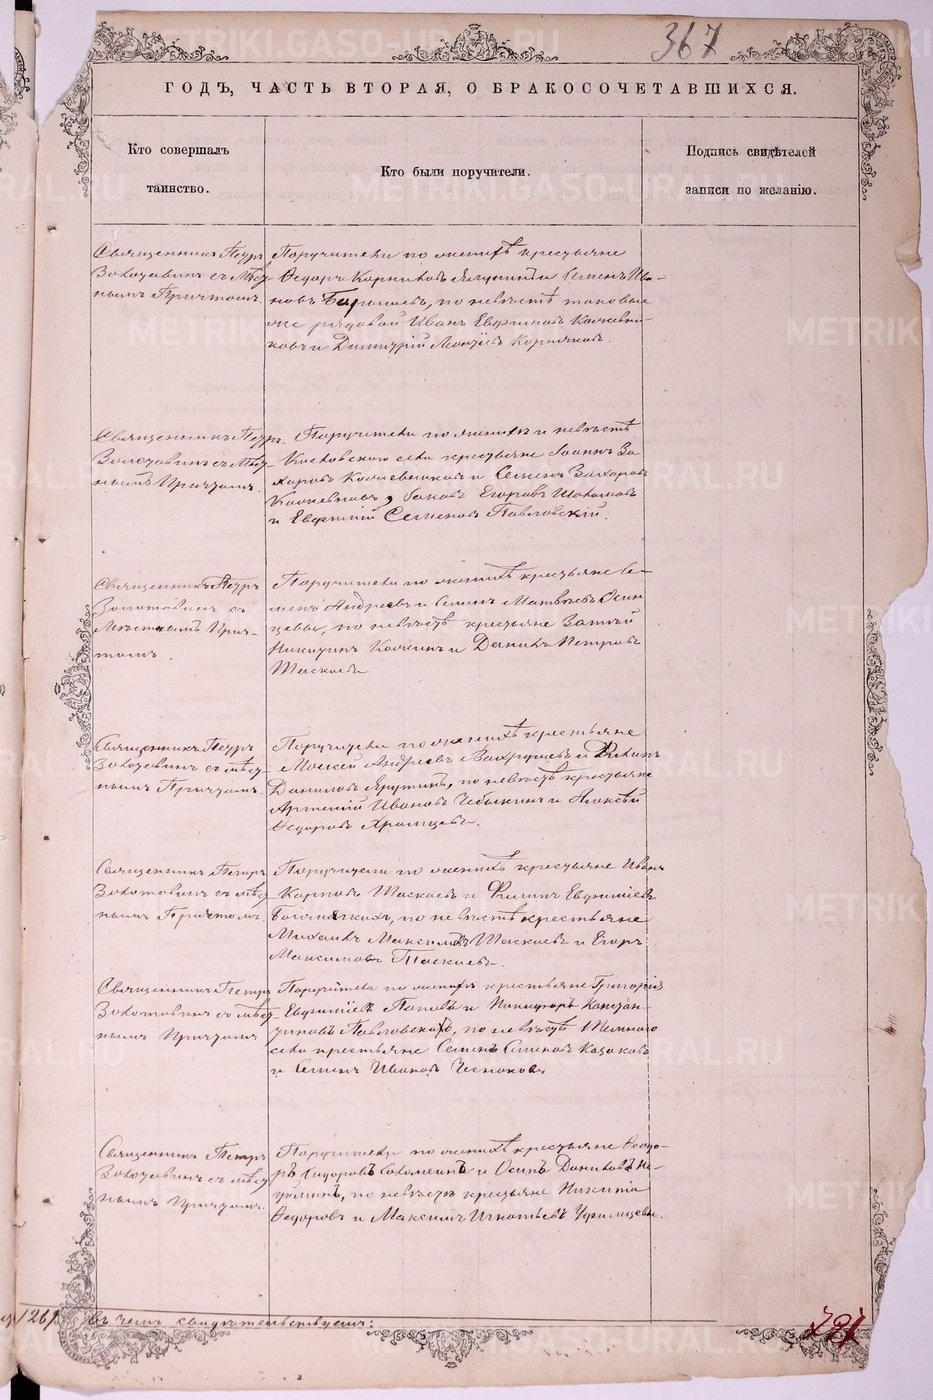 367
ГОДЪ, ЧАСТЬ ВТОРАЯ, О БРАКОСОЧЕТАВШИХСЯ.
Кто совершалъ
таинство.
Кто были поручители.
Подпись свидѣтелей
записи по желанію.
Священникъ Петръ
Золотавинъ съ мѣст-
нымъ Причтомъ.
Поручители по женихѣ крестьяне
Ѳедоръ Корниловъ и Семенъ Ива-
новъ по невѣстѣ таковые
же рядовой Иванъ Евфимовъ
и Димитрій
Священникъ Петръ
Золотавинъ съ мѣст-
нымъ Причтомъ.
Поручители по женихѣ и невѣстѣ
села крестьяне Іоаннъ За-
харовъ и Семенъ Захаровъ
Егоровъ
и Евфимій Семеновъ Павловскій.
Священникъ Петръ
Золотавинъ съ
мѣстнымъ Прич-
томъ.
Поручители по женихѣ крестьяне Се-
менъ Андреевъ и Семенъ Матвѣевъ Осин-
цевы, по невѣстѣ крестьяне
Никитинъ и Данилъ Петровъ
Таскаевъ
Священникъ Петръ
Золотавинъ съ мѣст-
нымъ Причтомъ.
Поручители по женихѣ крестьяне
Моисей Андреевъ Вахрушевъ и
Даниловъ по невѣстѣ крестьяне
Артемій Ивановъ Чебыкинъ и Алексѣй
Ѳедоровъ Храмцовъ.
Священникъ Петръ
Золотавинъ съ мѣст-
нымъ Причтомъ.
Поручители по женихѣ крестьяне Иванъ
Карповъ Таскаевъ и Филипъ Евфиміевъ
по невѣстѣ крестьяне
Михаилъ Максимовъ Таскаевъ и Егоръ
Максимовъ Таскаевъ.
Священникъ Петръ
Золотавинъ съ мѣст-
нымъ Причтомъ
Поручители по женихѣ крестьяне Григорій
Евфиміевъ Поповъ и Никифоръ Констан-
тиновъ Павловской, по невѣстѣ
села крестьяне Семенъ Семеновъ Казаковъ
и Семенъ Ивановъ Чесноковъ
Священникъ Петръ
Золотавинъ съ мѣст-
нымъ Причтомъ.
Поручители по женихѣ крестьяне Ѳеодо-
ръ Сидоровъ Соломеинъ и Осипъ Даниловъ
по невѣстѣ крестьяне Никита
Ѳедоровъ и Максимъ Игнатьевъ Уфимцевы.
въ чемъ свидѣтельствуемъ:
METRIKI.GASO-URAL.RU